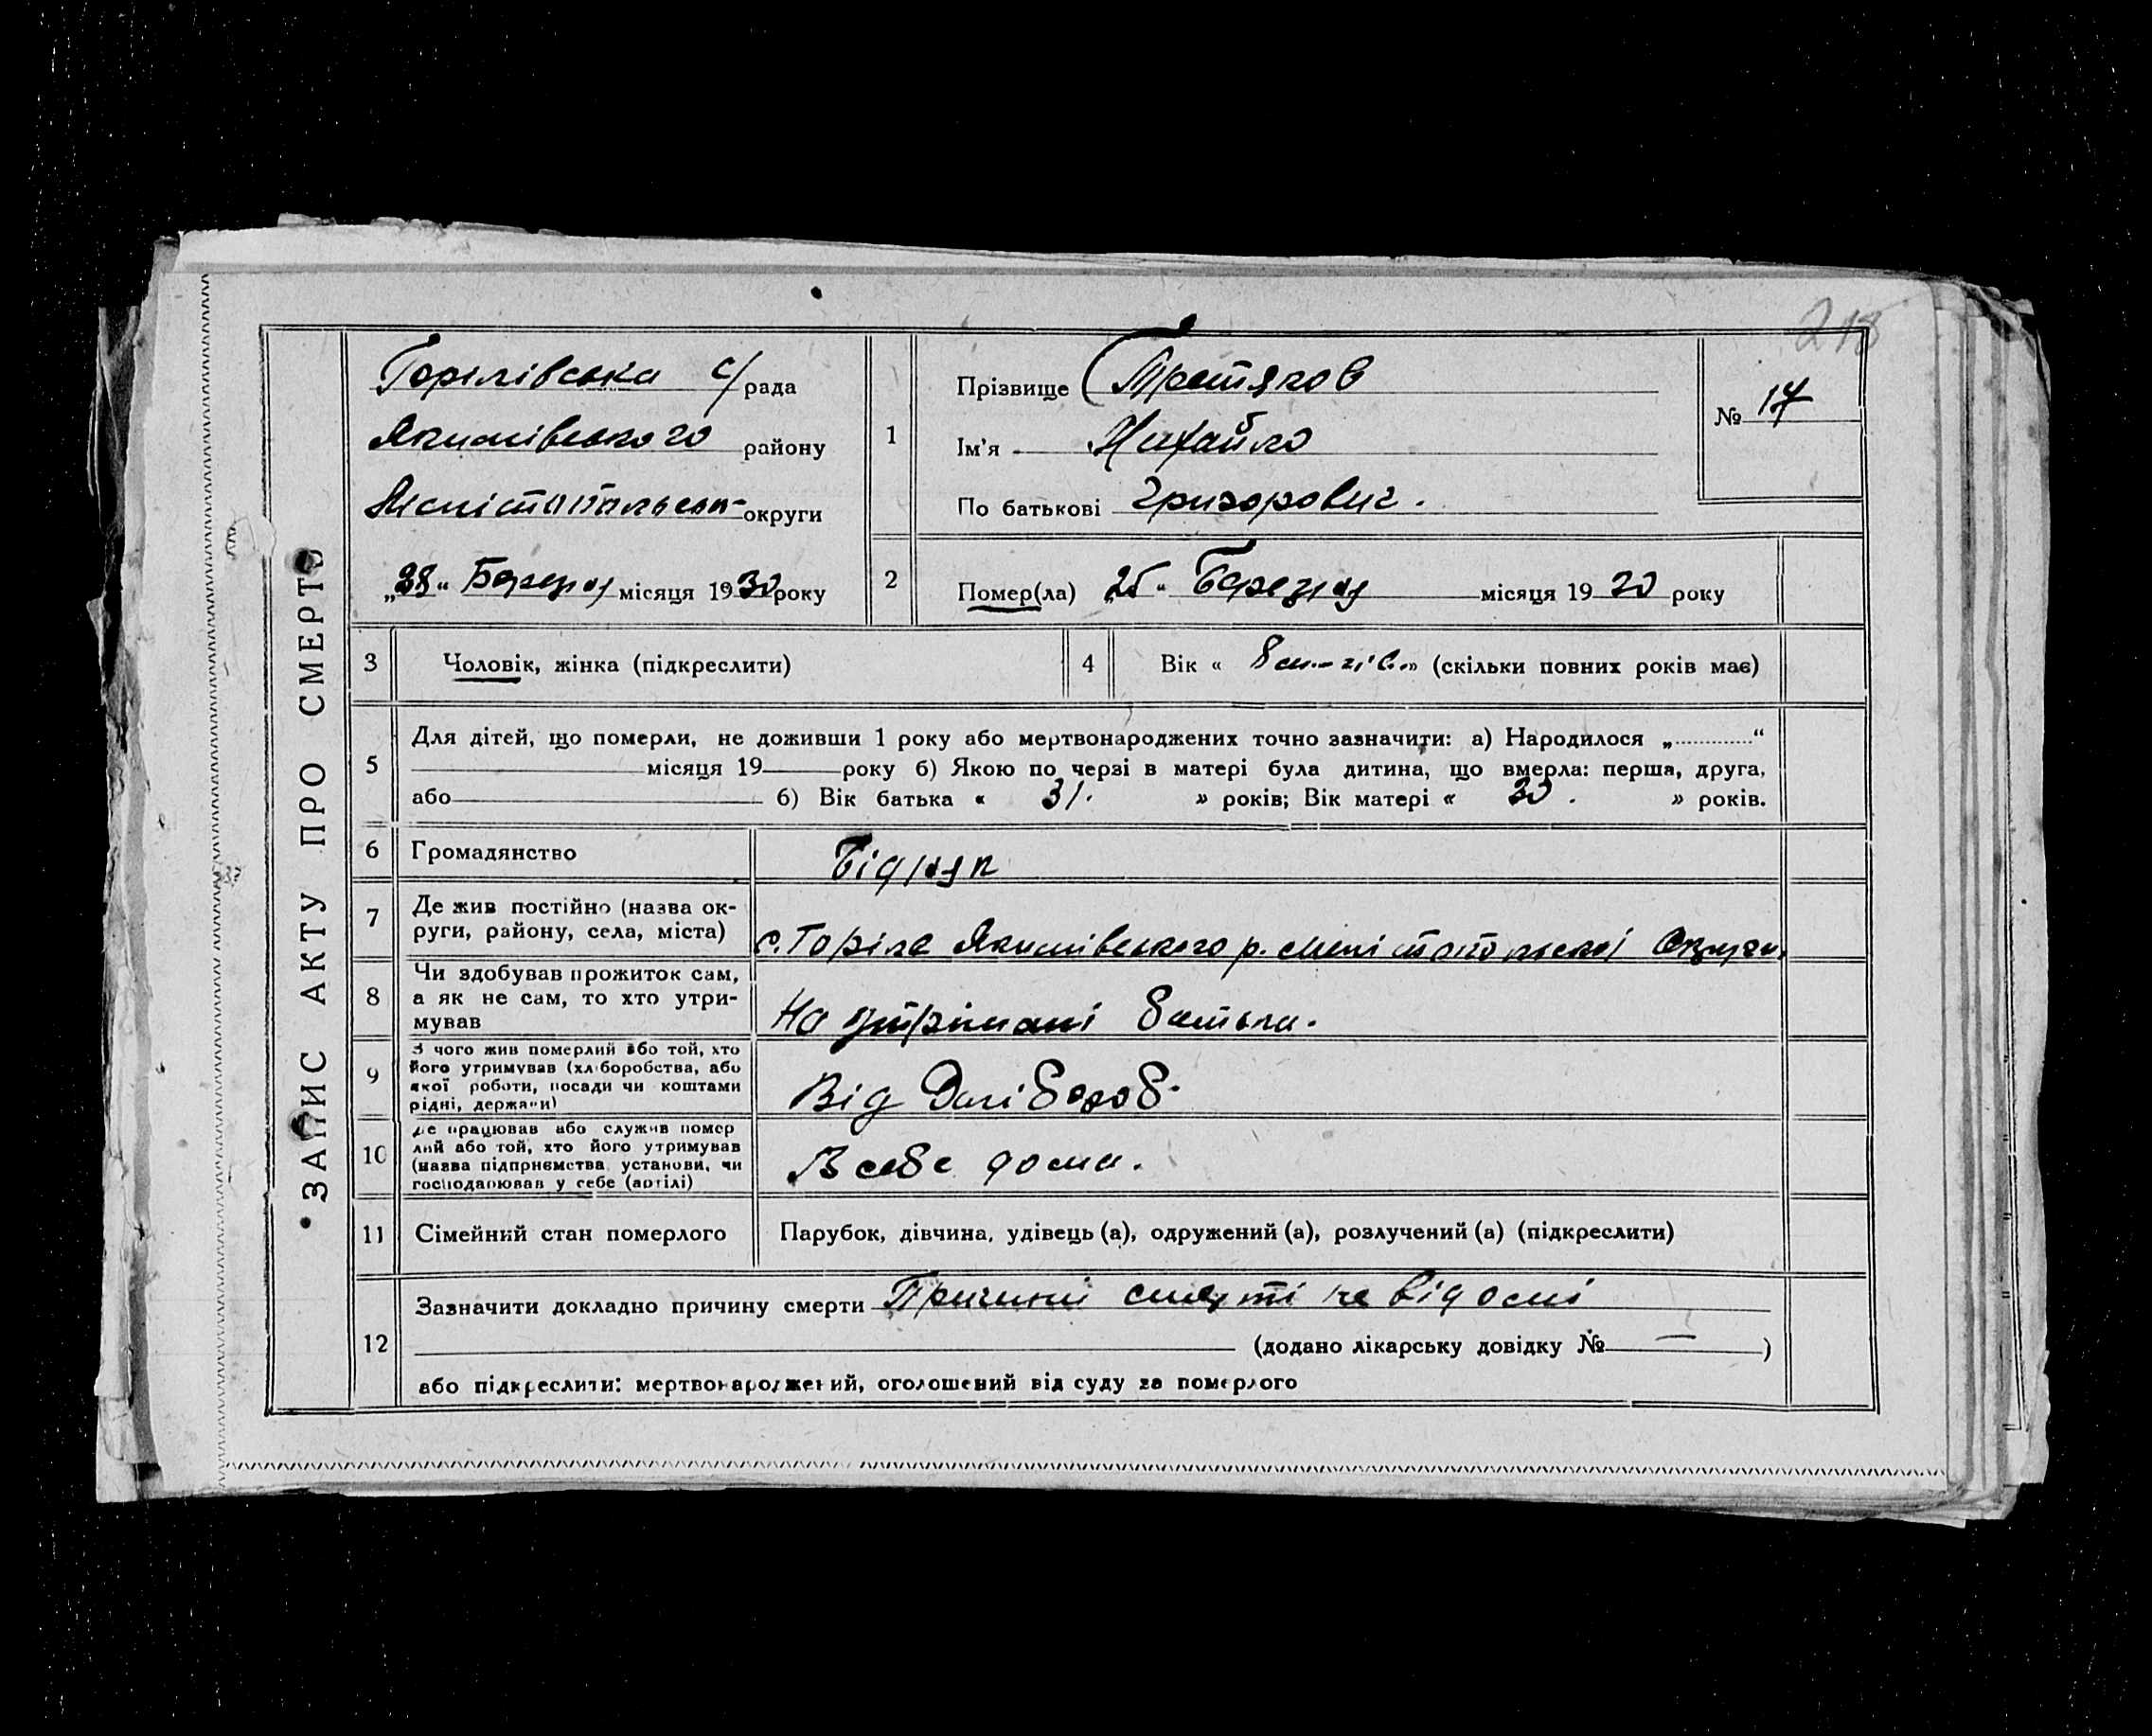 218
ЗАПИС АКТУ ПРО СМЕРТЬ
Горілівська с/рада
Якимівського району
Мелітопольськ- округи
„28“ Березня місяця 1930 року
1
Прізвище Третяков
Ім'я Михайло
По батькові Григорович.
№ 17
2
Помер(ла) „25“ Березня місяця 1930 року
3
Чоловік, жінка (підкреслити)
4
Вік « 8 м-ців. » (скільки повних років має)
5
Для дітей, що померли, не доживши 1 року або мертвонароджених точно зазначити: а) Народилося „ “
місяця 19 року б) Якою по черзі в матері була дитина, що вмерла: перша, друга,
або б) Вік батька « 31. » років; Вік матері « 30. » років.
6
Громадянство
Бідняк
7
Де жив постійно (назва ок-
руги, району, села, міста)
с. Горіле Якимівського р. Мелітопольської Округи.
8
Чи здобував прожиток сам,
а як не сам, то хто утри-
мував
На утрімані батька.
9
З чого жив померлий або той, хто
його утримував (хліборобства, або
якої роботи, посади чи коштами
рідні, держави)
Від
10
Де працював або служив помер
лий або той, хто його утримував
(назва підприємства установи, чи
господарював у себе (артілі)
В себе дома.
11
Сімейний стан померлого
Парубок, дівчина, удівець (а), одружений (а), розлучений (а) (підкреслити)
12
Зазначити докладно причину смерти Причині смерті не відомі
(додано лікарську довідку № — )
або підкреслити: мертвонароджений, оголошений від суду за померлого